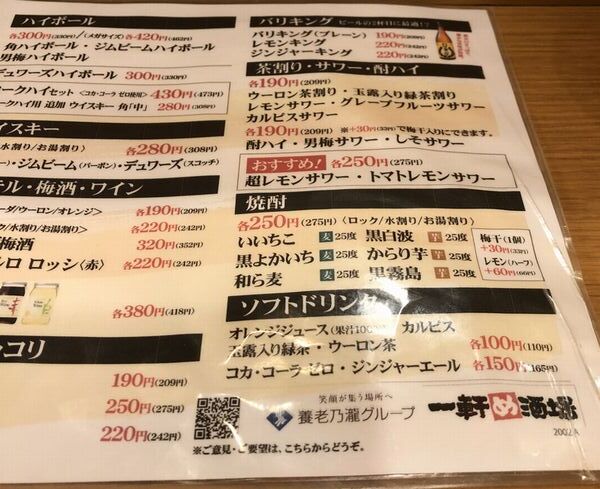 ハイボール
各300円(330円)/〈メガサイズ〉各420円(462円)
角ハイボール・ジムビームハイボール
男梅ハイボール
デュワーズハイボール 300円(330円)
ークハイセット〈コカ・コーラ ゼロ使用〉430円(473円)
ークハイ用 追加 ウイスキー 角「中」280円(308円)
イスキー
水割り/お湯割り〉 各280円(308円)
・ジムビーム(バーボン)・デュワーズ(スコッチ)
テル・梅酒・ワイン
ーダ/ウーロン/オレンジ〉 各190円(209円)
ク/水割り/お湯割り〉 各220円(242円)
梅酒 320円(352円)
ルロ ロッシ〈赤〉 各220円(242円)
各380円(418円)
ッコリ
190円(209円)
250円(275円)
220円(242円)
バリキング ビールの2杯目に最適!?
バリキング(プレーン) 190円(209円)
レモンキング 220円(242円)
ジンジャーキング 220円(242円)
茶割り・サワー・酎ハイ
各190円(209円)
ウーロン茶割り・玉露入り緑茶割り
レモンサワー・グレープフルーツサワー
カルピスサワー
各190円(209円) ※+30円(33円)で梅干入りにできます。
酎ハイ・男梅サワー・しそサワー
おすすめ! 各250円(275円)
超レモンサワー・トマトレモンサワー
焼酎
各250円(275円)〈ロック/水割り/お湯割り〉
いいちこ 麦 25度 黒白波 芋 25度
黒よかいち 麦 25度 からり芋 芋 25度
和ら麦 麦 25度 黒霧島 芋 25度
梅干(1個)
+30円(33円)
レモン(ハーフ)
+60円(66円)
ソフトドリンク
オレンジジュース(果汁100%)・カルピス
玉露入り緑茶・ウーロン茶 各100円(110円)
コカ・コーラ ゼロ・ジンジャーエール 各150円(165円)
笑顔が集う場所へ
養老乃瀧グループ
一軒め酒場
※ご意見・ご要望は、こちらからどうぞ。
2002A